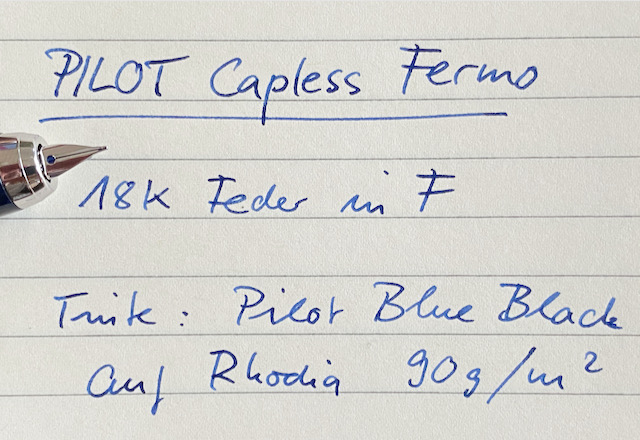 PILOT Capless Fermo
18K Feder in F
Tinte: Pilot Blue Black
auf Rhodia 90g/m²